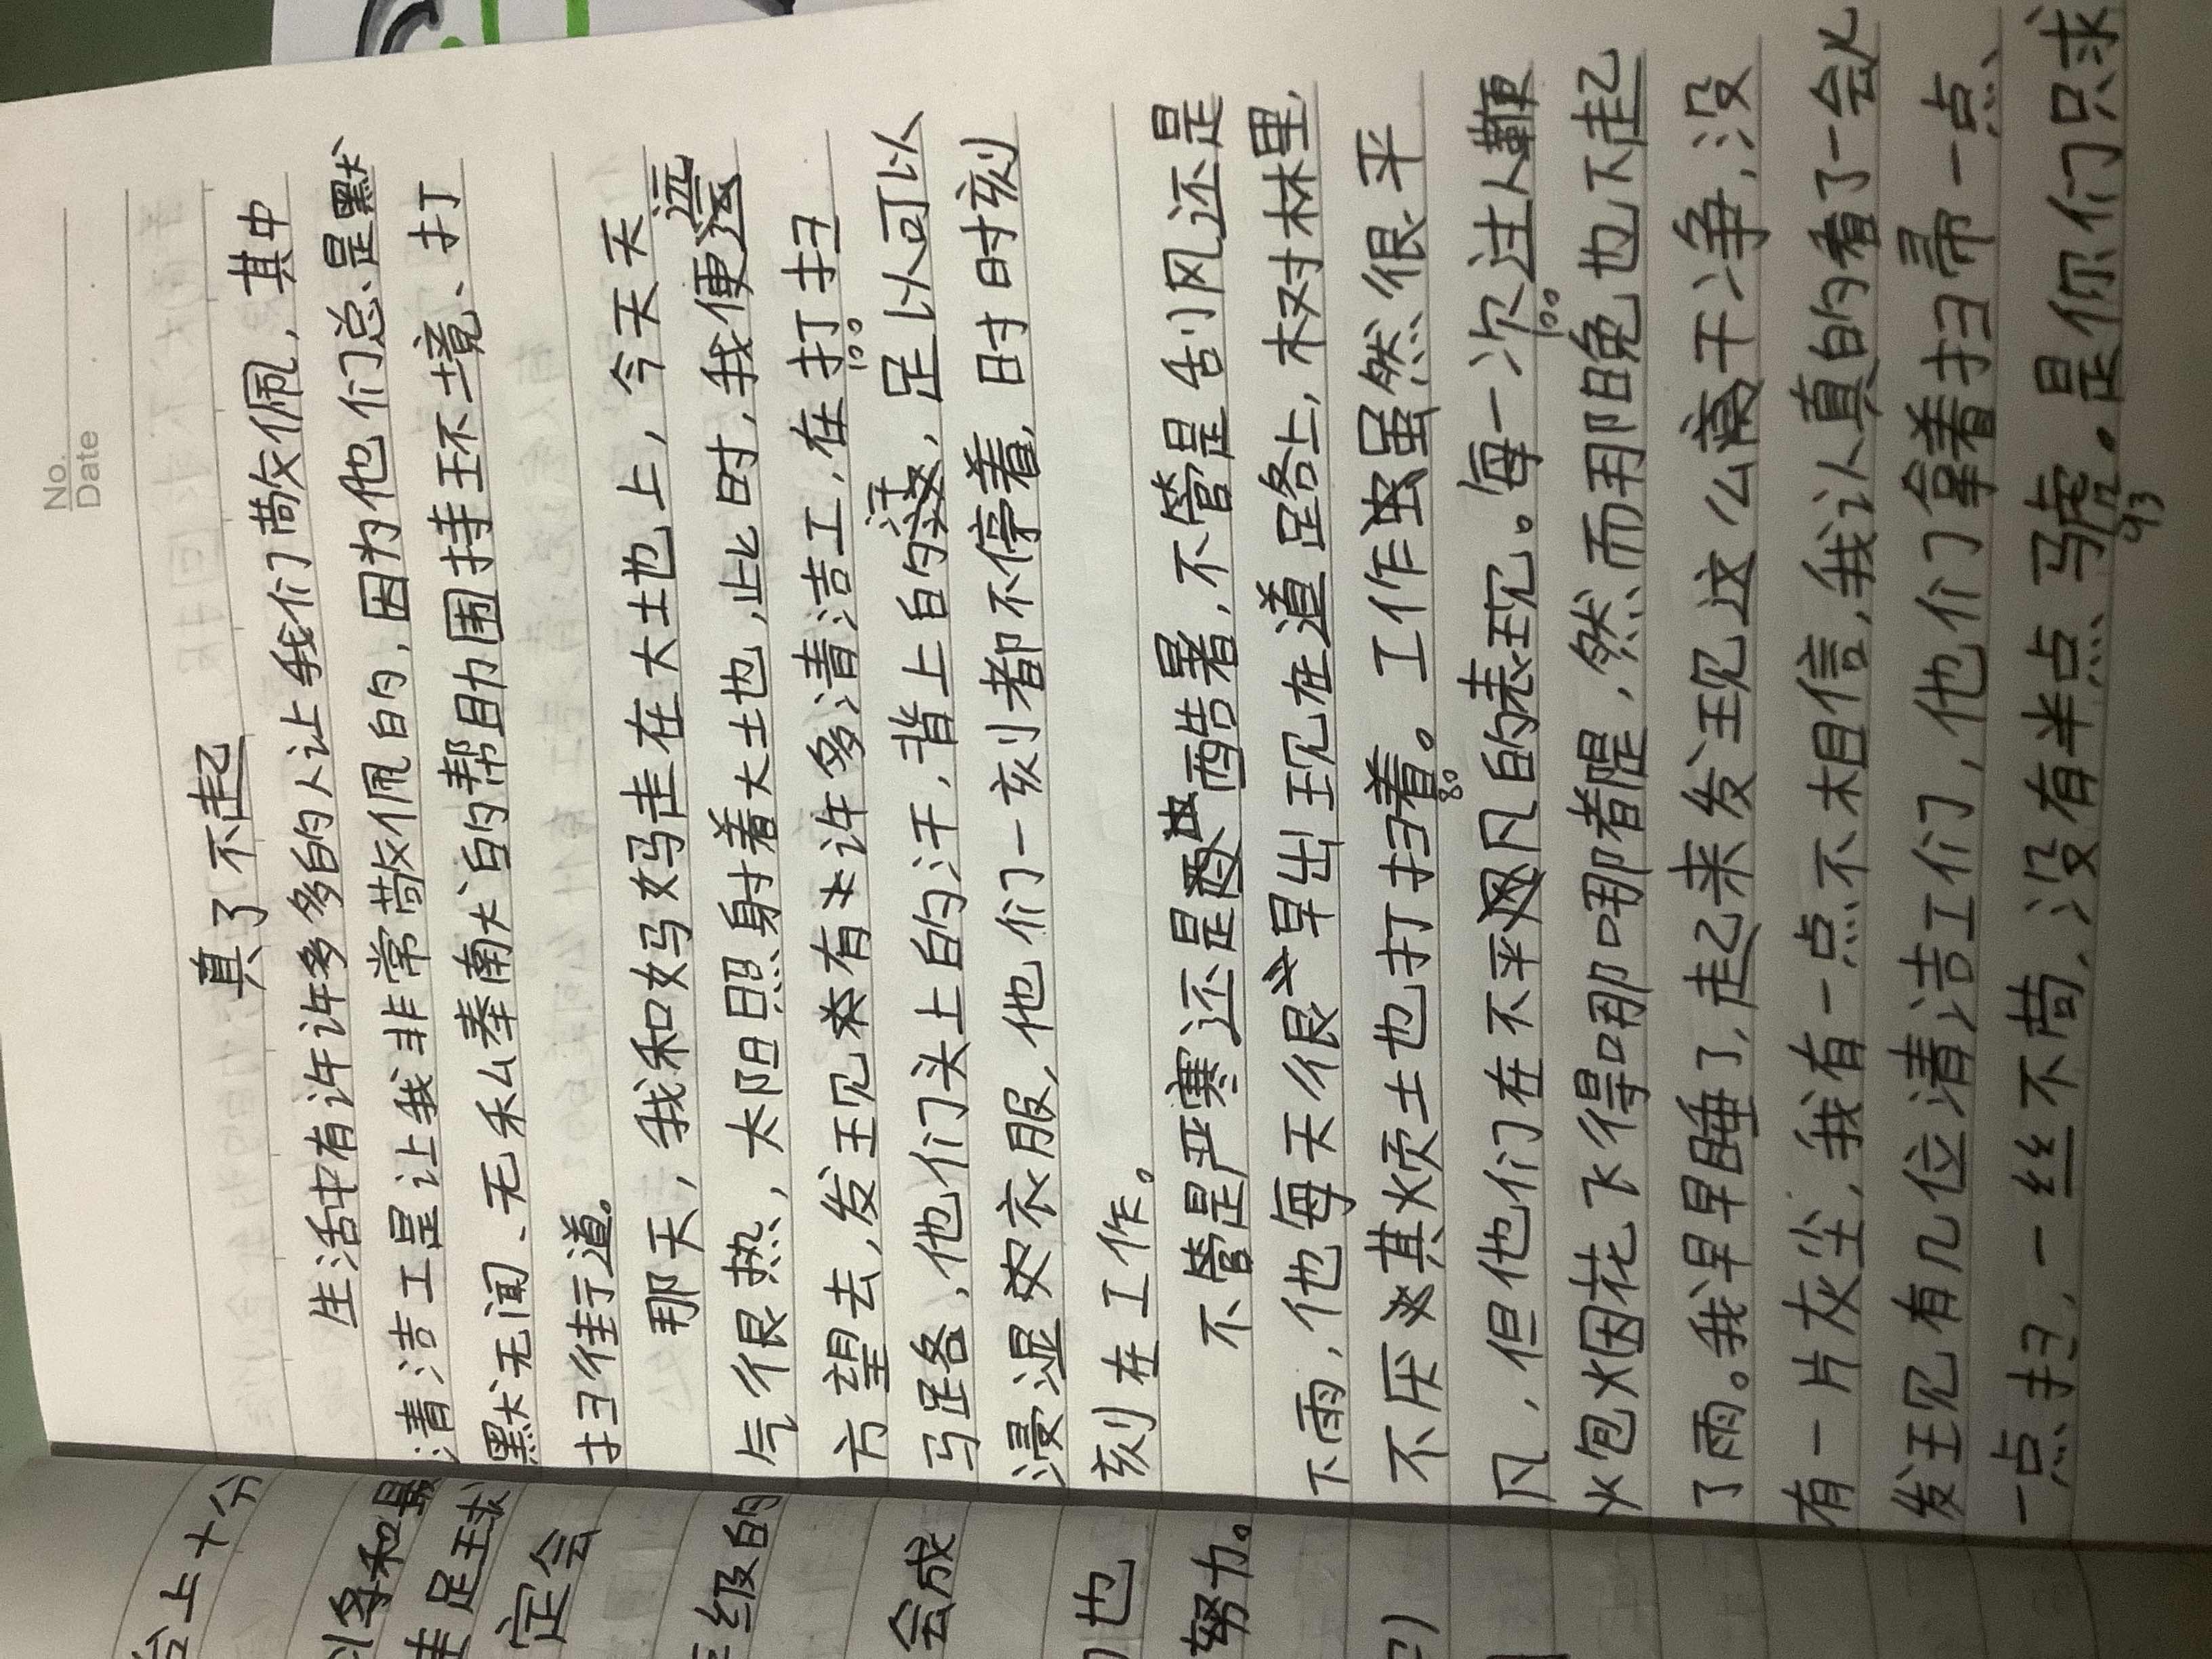 No.
Date
真了不起
生活中有许许多多的人让我们敬佩，其中
清洁工是让我非常敬佩的，因为他们总是默
默无闻、无私奉献的帮助围持环境、打
扫街道。
那天，我和妈妈走在大地上，今天天
气很热，太阳照射着大地，此时，我便远
方望去，发现有许多清洁工，在打扫
100
马路，他们头上的汗，背上的汗，足以可以
浸湿衣服，他们一刻都不停着，时时刻
刻在工作。
不管是严寒还是酷暑，不管是刮风还是
下雨，他每天很早出现在道路上，树林里，
不厌其烦地打扫着。工作虽然很平
凡，但他们在不平凡的表现。每一次过人鞭
火包烟花飞得哪哪都是，然而那晚也下起
了雨。我早早睡了，起来发现这么干净，没
有一片灰尘，我有一点不相信，我认真的看了一会
发现有几位清洁工们，他们拿着扫帚一点、
一点扫，一丝不苟，没有半点马虎。是你们只求
台上十分
和最
走足球
定会
级的
会成
也
努力。